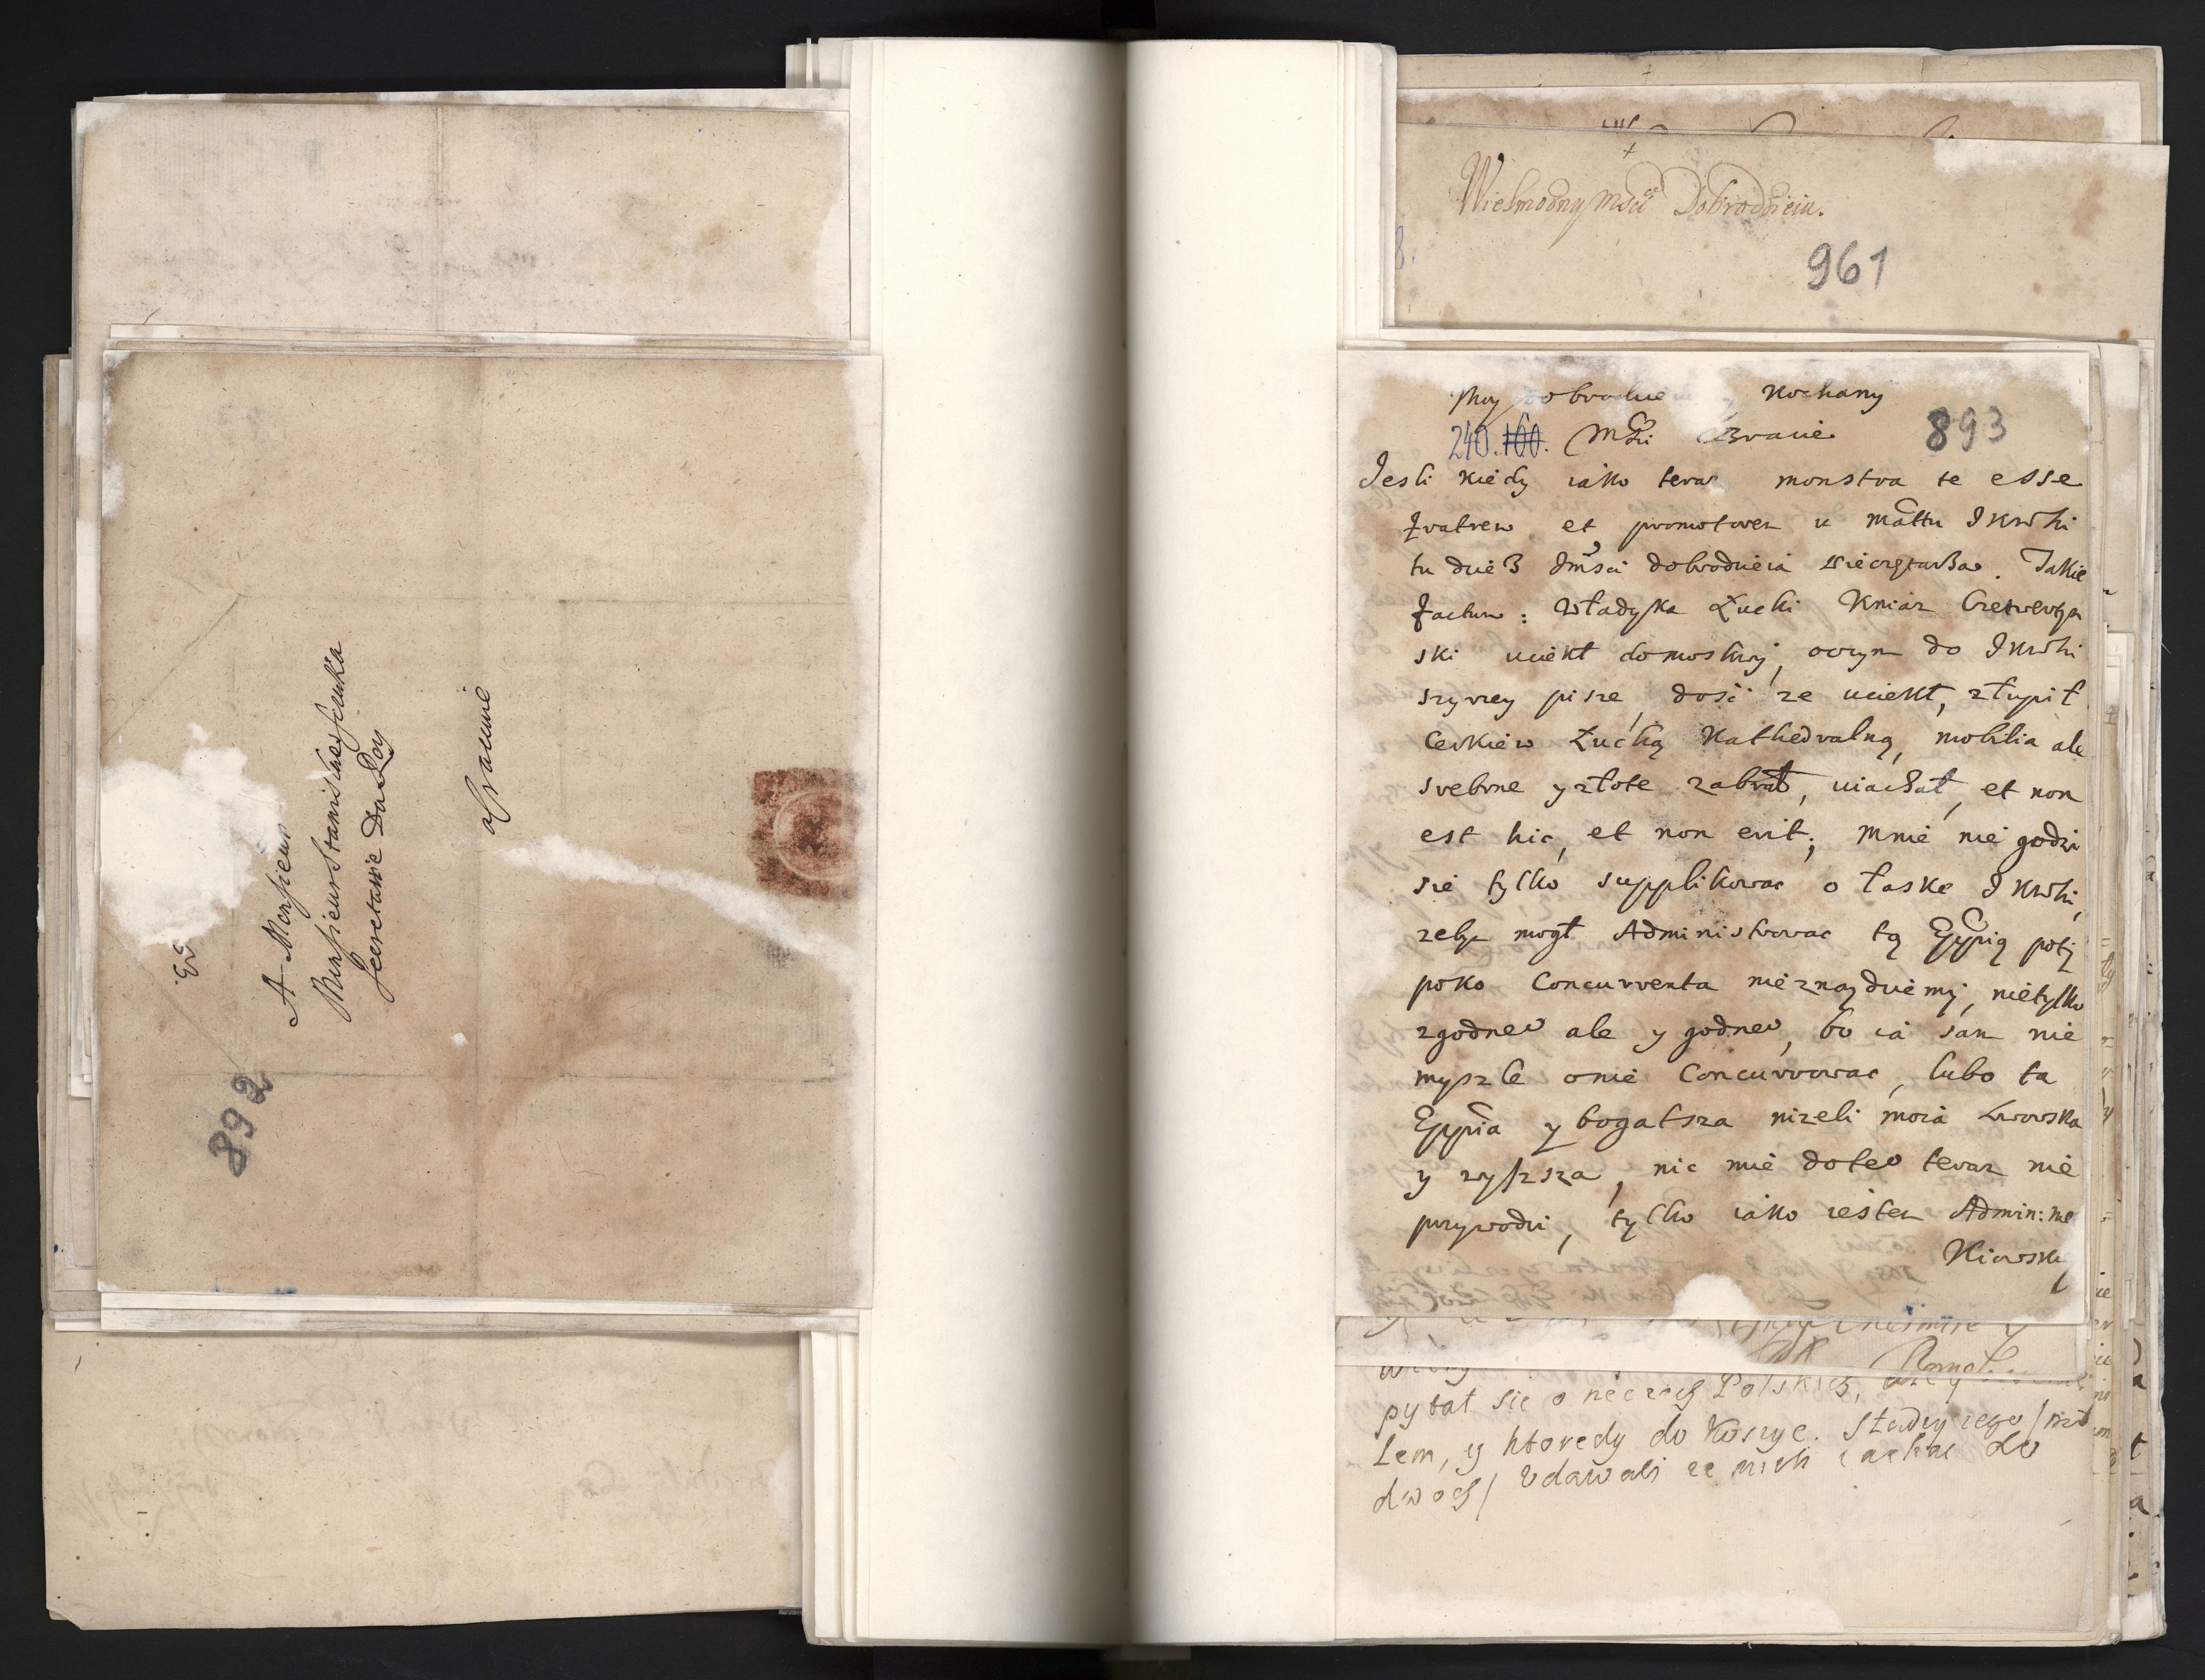 A Monsieur
Monsieur Stanislas Szczuka
Secretaire Du Roy
a Cracovie
892
Wielmożny Mści Dobrodzieiu.
961
Moy Dobrodzie y Kochany
240. 160. Mści Bracie 893
Jesli kiedy iako teraz monstra te esse
fratrem et promotorem u Mattu JKMhi
tu dzies Jmści dobrodzieia . Takie
factum: Władyka Łucki Kniaz Czetwertyn
ski uciekł do moskwy, oczym do JKMhi
szyrzey pisze, dość ze uciekł, złupił
Cerkiew Łucką Kathedralną, mobilia ale
srebrne y złote zabrał, uiachał, et non
est hic, et non erit; mnie nie godzi
sie tylko supplikowac o łaske JKMhi,
zeby mogł Administrowac tą Eppią poty
poko Concurrenta nieznaydziemy, nietylko
zgodneo ale y godneo, bo ia sam nie
myszle onie Concurrowac, lubo ta
Eppia y bogatsza nizeli moia Lwowska
y wyszsza, nic mie doteo teraz nie
przywodzi, tylko iako iestem Admin: me
Kiowski
pytał się o rzeczach Polskich,
Lem, y ktoredy do Koszyc.
dwoch / Udawali ze